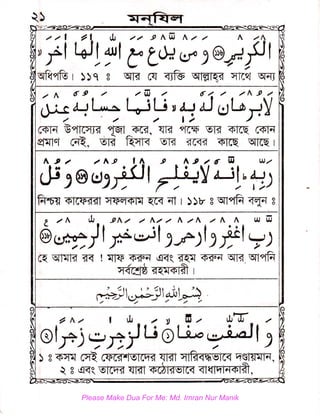 ২১ মনযিল
الْكَرِيْمِ ۝ وَمَنْ يَّدْعُ مَعَ اللّٰهِ اِلٰهًا
অধিপতি। ১১৭ ঃ আর যে ব্যক্তি আল্লাহ্র সাথে অন্য
اٰخَرَ لَا بُرْهَانَ لَهٗ بِهٖ فَاِنَّمَا حِسَابُهٗ عِنْدَ
কোন উপাস্যের পূজা করে, যার পক্ষে তার কাছে কোন
প্রমাণ নেই, তার হিসাব তার রবের কাছে আছে।
رَبِّهٖ اِنَّهٗ لَا يُفْلِحُ الْكٰفِرُوْنَ ۝ وَقُلْ
নিশ্চয় কাফেররা সফলকাম হবে না। ১১৮ ঃ আপনি বলুন ঃ
رَبِّ اغْفِرْ وَارْحَمْ وَاَنْتَ خَيْرُ الرّٰحِمِيْنَ ۝
হে আমার রব ! মাফ করুন এবং রহম করুন আর আপনি
সর্বশ্রেষ্ঠ রহমকারী।
بِسْمِ اللّٰهِ الرَّحْمٰنِ الرَّحِيْمِ
وَالصّٰٓفّٰتِ صَفًّا ۝ فَالزّٰجِرٰتِ زَجْرًا ۝
১ ঃ কসম সেই ফেরেশতাদের যারা সারিবদ্ধভাবে দণ্ডায়মান,
২ ঃ এবং তাদের যারা কঠোরভাবে ধমকদানকারী,
Please Make Dua For Me: Md. Imran Nur Manik